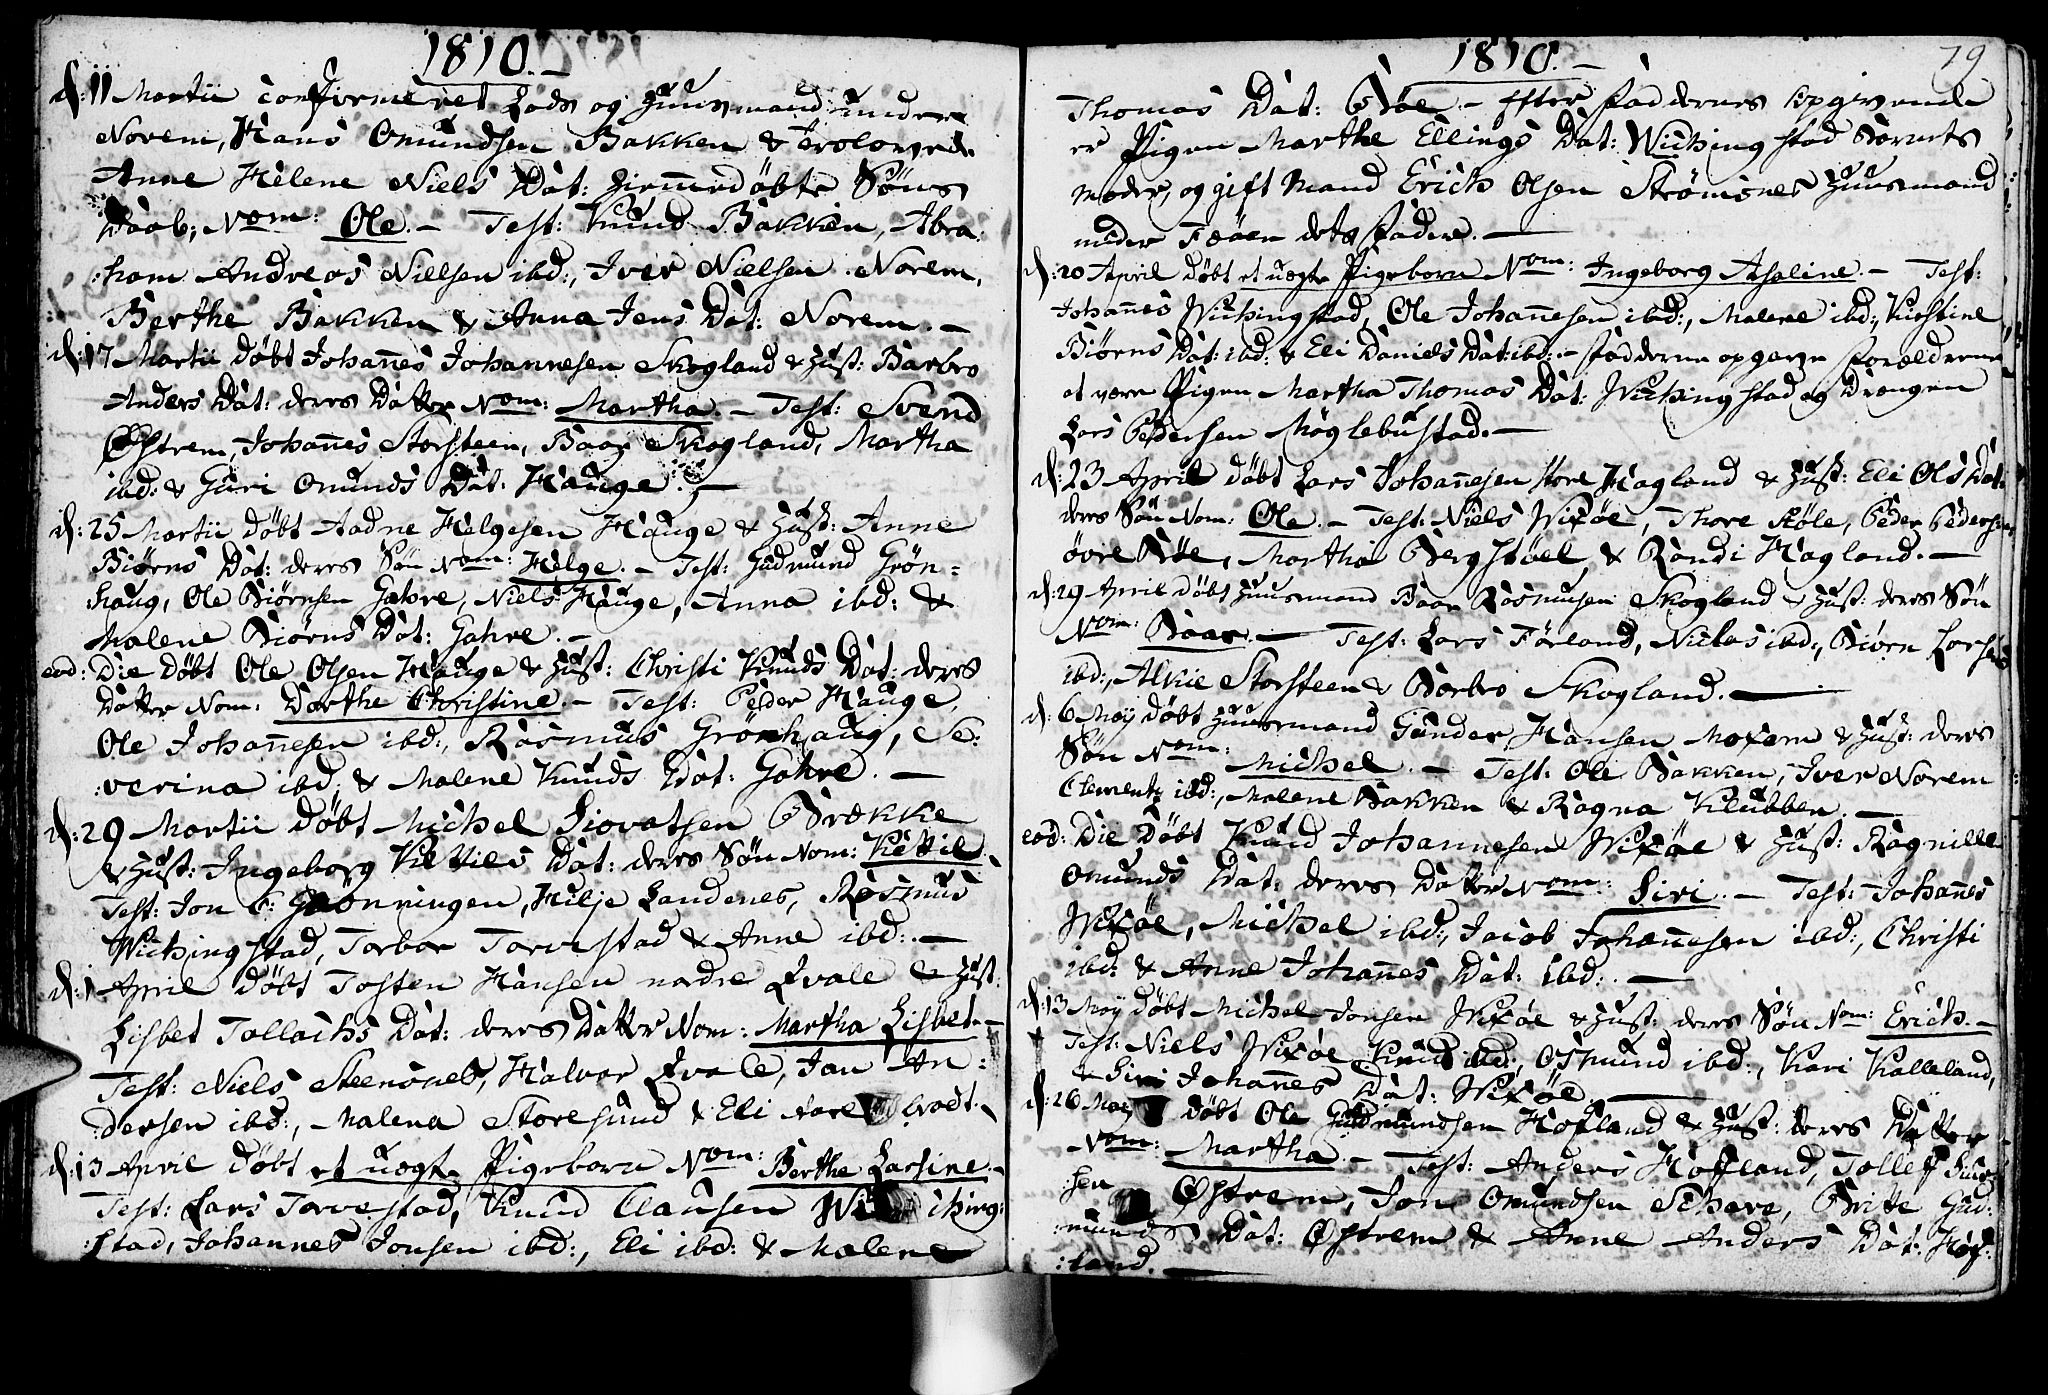 1810.
d: 11 Martii confirmeret Lods og Huusmand under
Norem, Hans Omundsen Bakken & trolovede
Anne Helene Niels Dat: hiemmedøbte Søns
Daab; Nom: Ole. Test: Knud Bakken, Abra:
:ham Andreas Nielsen ibd:, Iver Nielsen Norem,
Berthe Bakken & Anna Jens Dat: Norem.
d: 17 Martii døbt Johannes Johannesen Skogland & Hust: Barbro
Anders Dat: deres Datter Nom: Martha. Test: Svend
Østrem, Johannes Storsteen, Baar Skogland, Martha
ibd: & Guri Omunds Dat: Hauge.
d: 25 Martii døbt Aadne Helgesen Hauge & Hust: Anne
Biørns Dat: deres Søn Nom: Helge. Test: Gudmund Grøn=
:haug, Ole Biørnsen Gahre, Niels Hauge, Anna ibd: &
Malene Biørns Dat: Gahre.
eod: Die døbt Ole Olsen Hauge & Hust: Christi Knuds Dat: deres
Datter Nom: Dorthe Christine. Test: Peder Hauge,
Ole Johannesen ibd:, Rasmus Grønhaug, Se:
:verina ibd: & Malene Knuds Dat: Gahre.
d: 29 Martii døbt Michel Siovatsen Brekke
& Hust: Ingeborg Kittils Dat: deres Søn Nom: Kittil.
Test: Jon Grønningen, Hilje Sandenes, Rasmus
Wichingstad, Torbor Torvestad & Anne ibd:
d: 1 April døbt Tosten Hansen nedre Qvale & Hust:
Lisbet Tollachs Dat: deres Datter Nom: Martha Lisbet.
Test: Niels Steensnes, Halvor Qvale, Jan An:
:dersen ibd:, Malena Storesund & Eli
d: 13 April døbt et uægte Pigebarn Nom: Berthe Larsine.
Test: Lars Torvestad, Knud Clausen Wiching:
:stad, Johannes Jonsen ibd:, Eli ibd: & Malene
1810.
79
Thomas Dat: Bøe. Efter Faddernes Opgivende
er Pigen Marthe Ellings Dat: Wichingstad Barnets
Moder, og gift Mand Erich Olsen Strømsnes Huusmand
under Feøen dets Fader.
d: 20 April døbt et uægte Pigebarn Nom: Ingeborg Asaline. Test:
Johannes Wichingstad, Ole Johannesen ibd:, Malene ibd:, Kirstine
Biørns Dat: ibd: & Eli Daniels Dat: ibd: Fadderne opgave Forældrene
at være Pigen Martha Thomas Dat: Wichingstad og Drengen
Lars Pedersen Møglebustad.
d: 23 April døbt Lars Johannesen store Hagland & Hust: Eli Ols Dat:
deres Søn Nom: Ole. Test: Niels Wixøe, Thore Støle, Peder Pedersen
øvre Bøe, Martha Bergstøel, & Randi Hagland.
d: 29 April døbt Huusmand Baar Rasmusen Skogland & Hust: deres Søn
Nom: Baar. Test: Lars Førland, Niclas ibd:, Biørn Larsen
ibd:, Alkie Storsteen & Barbro Skogland.
d: 6 Maÿ døbt Huusmand Gunder Hansen Norem & Hust: deres
Søn Nom: Michel. Test: Ole Bakken, Iver Norem
Clement ibd:, Malene Bakken & Ragna Klubben.
eod: Die døbt Knud Johannesen Wixøe & Hust: Ragnille
Omunds Dat: deres Datter Nom: Siri. Test: Johannes
Wixøe, Michel ibd:, Jacob Johannesen ibd:, Christi
ibd: & Anne Johannes Dat: ibd:
d: 13 Maÿ døbt Michel Jonsen Wixøe & Hust: deres Søn Nom: Erich.
Test: Niels Wixøe Knud ibd:, Osmund ibd:, Kari Kalleland,
& Siri Johannes Dat: Wixøe.
d: 26 Maÿ døbt Ole Gudmundsen Hofland & Hust: deres Datter
Nom: Martha. Test: Anders Hofland, Tollef
:sen Østrem, Jon Omundsen Schare, Britte Gud:
:munds Dat: Østrem & Anne Anders Dat: Hof:
:land.